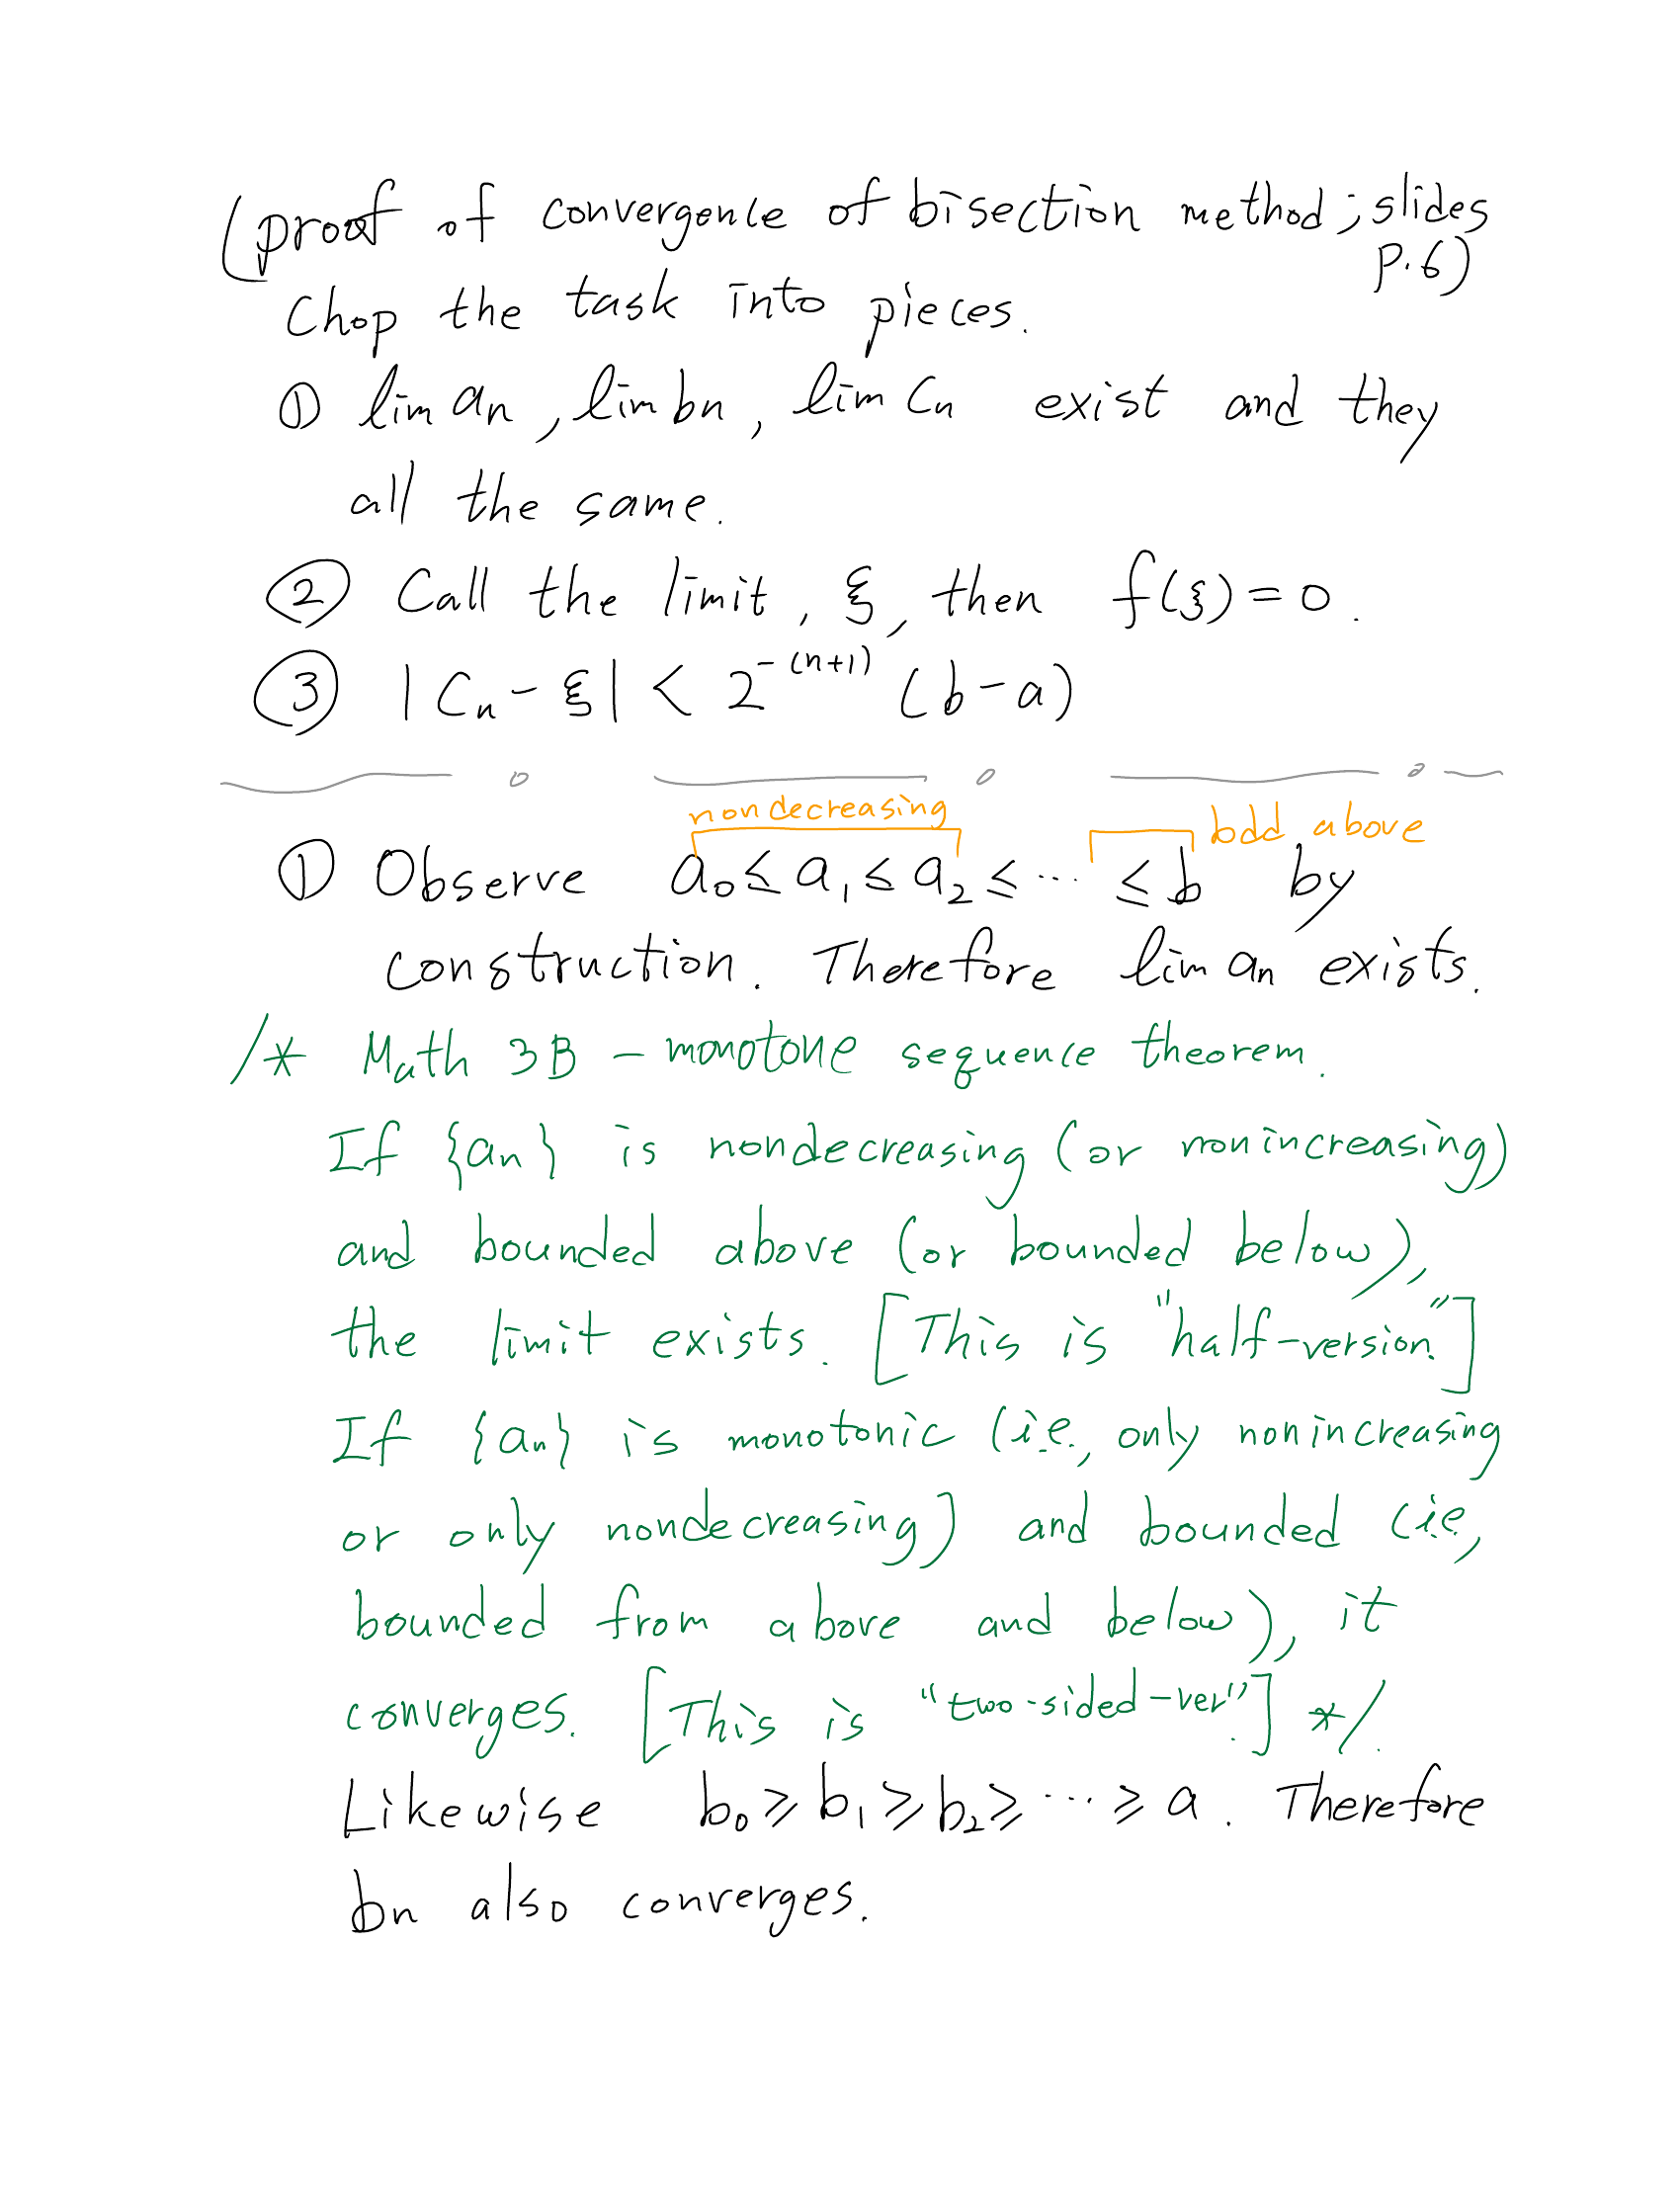 (proof of convergence of bisection method; slides
p.6)
Chop the task into pieces.
① lim an, lim bn, lim Cn exist and they
all the same.
② Call the limit, ξ, then f(ξ)=0.
③ |Cn-ξ| < 2^-(n+1) (b-a)
nondecreasing bdd above
① Observe a0 ≤ a1 ≤ a2 ≤ ... ≤ b by
construction. Therefore lim an exists.
/* Math 3B - monotone sequence theorem.
If {an} is nondecreasing (or nonincreasing)
and bounded above (or bounded below),
the limit exists. [This is "half-version."]
If {an} is monotonic (i.e., only nonincreasing
or only nondecreasing) and bounded (i.e,
bounded from above and below), it
converges. [This is "two-sided-ver".] */.
Likewise b0 ≥ b1 ≥ b2 ≥ ... ≥ a. Therefore
bn also converges.